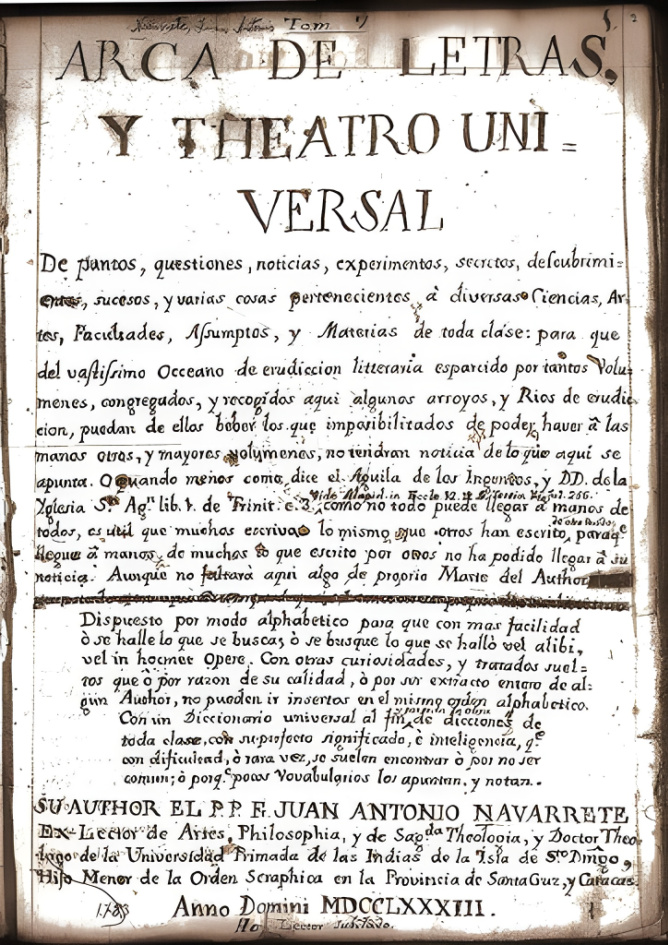 Tom. 
ARCA DE LETRAS,
Y THEATRO UNI=
VERSAL
De puntos, questiones, noticias, experimentos, secretos, descubrimi=
entos, sucesos, y varias cosas pertenecientes à diversas Ciencias, Ar=
tes, Facultades, Assumptos, y Materias de toda clase: para que
del vastissimo Occeano de erudiccion litteraria esparcido por tantos Volu=
menes, congregados, y recogidos aqui algunos arroyos, y Rios de erudic=
cion, puedan de ellos beber los que imposibilitados de poder haver â las
manos otros, y mayores volumenes, no tendran noticia de lo que aqui se
apunta. O quando menos como dice el Aguila de los Ingenios, y DD. de la
Yglesia Sn. Agn. lib. 1. de Trinit. c. 3. como no todo puede llegar â manos de
todos, es util que muchos escrivan lo mismo que otros han escrito, paraqe
llegue â manos de muchos lo que escrito por otros no ha podido llegar â su
noticia. Aunque no faltarà aqui algo de proprio Marte del Author
Dispuesto por modo alphabetico para que con mas facilidad
ò se halle lo que se busca; ò se busque lo que se hallò vel alibi,
vel in hocmet Opere. Con otras curiosidades, y tratados suel=
tos que ò por razon de su calidad, ò por ser extracto entero de al=
gun Author, no pueden ir insertos en el mismo orden alphabetico.
Con un Diccionario universal al fin, de dicciones de
toda clase, con su perfecto significado, è inteligencia, qe.
con dificultad, ò rara vez, se suelen encontrar ò por no ser
comun; ò porqe. pocos Vovabularios los apuntan, y notan.
SU AUTHOR EL P. P. Fr. JUAN ANTONIO NAVARRETE
Ex-Lector de Artes, Philosophia, y de Sagda. Theologia, y Doctor Theo
logo de la Universidad Primada de las Indias de la Isla de Sto. Dmgo,
Hijo Menor de la Orden Seraphica en la Provincia de Santa Cruz, y Caracas.
1783 Anno Domini MDCCLXXXIII.
Lector Jubilado.